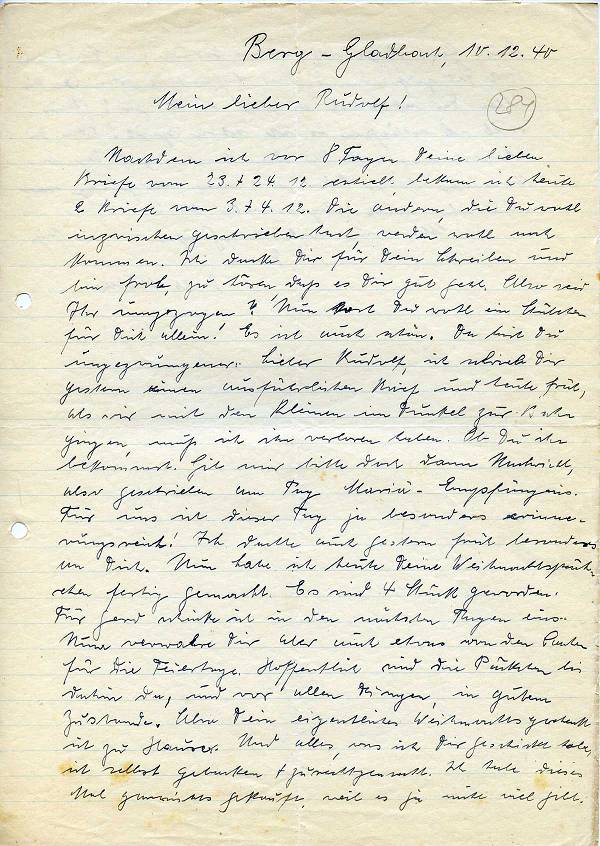 Berg-Gladbach, 10.12.40
284
Mein lieber Rudolf!
Nachdem ich vor 8 Tagen Deine lieben
Briefe vom 23. + 24. 12. erhielt, bekam ich heute
2 Briefe vom 3. + 4. 12. Die andern, die Du wohl
inzwischen geschrieben hast, werden wohl noch
kommen. Ich danke Dir für Dein Schreiben und
bin froh, zu hören daß es Dir gut geht. Also seid
Ihr umgezogen? Nun hast Du wohl ein Stübchen
für Dich allein! Es ist auch schön. Da bist Du
ungezwungener. Lieber Rudolf, ich schrieb Dir
gestern einen ausführlichen Brief und heute früh,
als wir mit den Kleinen im Dunkel zur Bahn
gingen, muß ich ihn verloren haben. Ob Du ihn
bekommst. Gib mir bitte doch dann Nachricht,
also geschrieben am Tag Mariä-Empfängnis.
Für uns ist dieser Tag ja besonders erinne-
rungsreich! Ich dachte auch gestern früh besonders
an Dich. Nun habe ich heute Deine Weihnachtspäck-
chen fertig gemacht. Es sind 4 Stück geworden.
Für Gerd schicke ich in den nächsten Tagen eins.
Nun verwahre Dir aber auch etwas von den Sachen
für die Feiertage. Hoffentlich sind die Päckchen bis
dahin da, und vor allen Dingen, in gutem
Zustande. Also Dein eigentliches Weihnachtsgeschenk
ist zu Hause. Und alles, was ich Dir geschickt habe,
ist selbst gebacken + zurechtgemacht. Ich habe dieses
Mal gekauft, weil es ja nicht viel gibt.